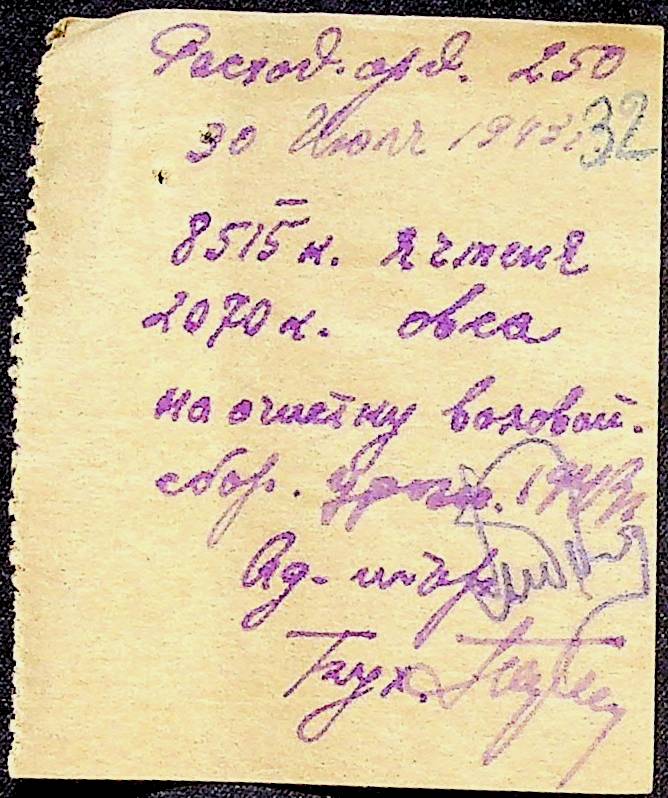 Расход. орд. 250
30 Июля 1943 г. 32
8515 к. Ячменя
2070 к. овса
на очистку валовой.
сбор. урож. 1943
Ад-
Бух.